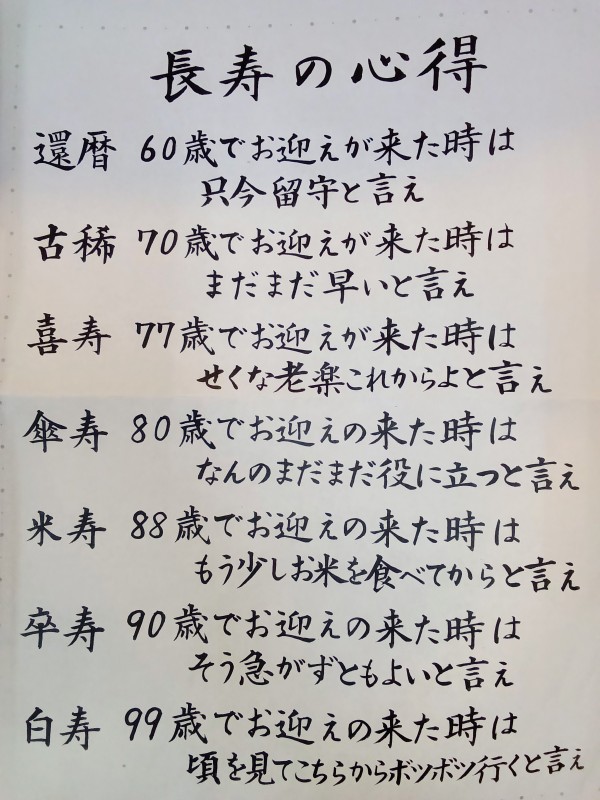 長寿の心得
還暦 60歳でお迎えが来た時は
只今留守と言え
古稀 70歳でお迎えが来た時は
まだまだ早いと言え
喜寿 77歳でお迎えが来た時は
せくな老楽これからよと言え
傘寿 80歳でお迎えの来た時は
なんのまだまだ役に立つと言え
米寿 88歳でお迎えの来た時は
もう少しお米を食べてからと言え
卒寿 90歳でお迎えの来た時は
そう急がずともよいと言え
白寿 99歳でお迎えの来た時は
頃を見てこちらからボツボツ行くと言え